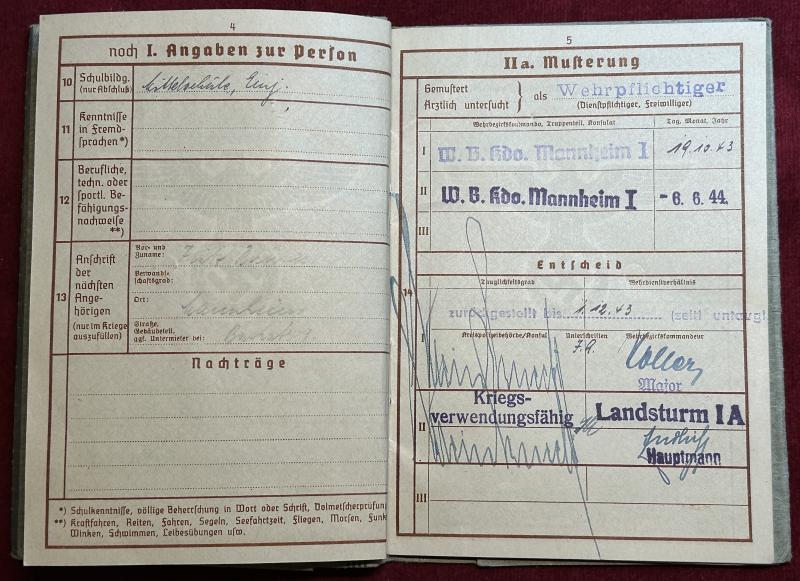 4
noch I. Angaben zur Person
10 Schulbildg. (nur Abschluß) Mittelschule,
11 Kenntnisse in Fremdsprachen *)
12 Berufliche, techn. oder sportl. Befähigungsnachweise **)
13 Anschrift der nächsten Angehörigen (nur im Kriege auszufüllen)
Vor- und Zuname:
Verwandtschaftsgrad:
Ort: Mannheim
Straße, Gebäudeteil, ggf. Untermieter bei:
Nachträge
*) Schulkenntnisse, völlige Beherrschung in Wort oder Schrift, Dolmetscherprüfung
**) Kraftfahren, Reiten, Fahren, Segeln, Seefahrtzeit, Fliegen, Morsen, Funk
Winken, Schwimmen, Leibesübungen usw.
5
IIa. Musterung
Gemustert
Ärztlich untersucht } als Wehrpflichtiger
(Dienstpflichtiger, Freiwilliger)
Wehrbezirkskommando, Truppenteil, Konsulat Tag, Monat, Jahr
I W. B. Kdo. Mannheim I 19.10.43
II W. B. Kdo. Mannheim I - 6. 6. 44.
III
Entscheid
Tauglichkeitsgrad Wehrdienstverhältnis
14
zurückgestellt bis 1.12.43 (zeitl untaugl.
I Kreispolizeibehörde/Konsul Unterschriften Wehrbezirkskommandeur
Major
II Kriegs-
verwendungsfähig Landsturm I A
Hauptmann
III